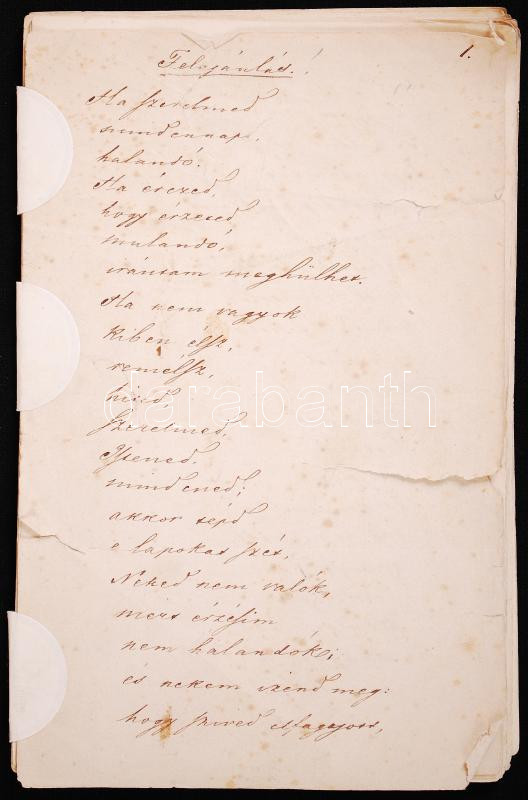 1.
Felajánlás!
Ha szerelmed
mindennap,
halandó.
Ha érezed,
hogy érzesed
mulandó,
irántam meghülhet.
Ha nem vagyok
kiben élsz,
remélsz,
hited,
szerelmed,
Istened,
mindened;
akkor tépd
e lapokat szét,
Neked nem valók,
mert érzésim
nem halandók;
és nekem izend meg:
hogy szived elfagyott,
darabanth